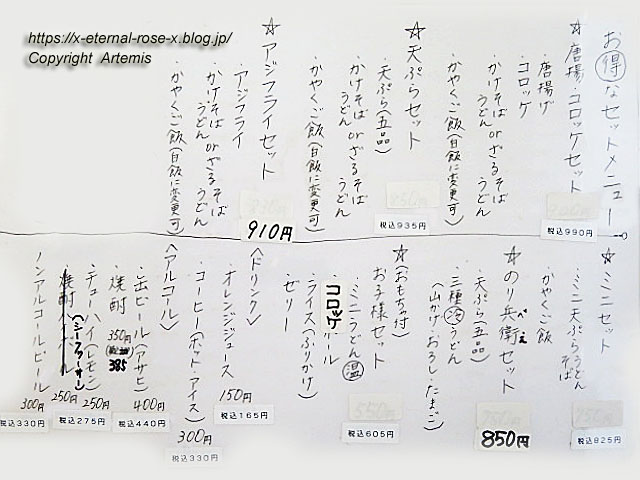 https://x-eternal-rose-x.blog.jp/
Copyright Artemis
お得なセットメニュー
☆唐揚・コロッケセット
・唐揚げ
・コロッケ
・かけそばorざるそば
うどん うどん
・かやくご飯(白飯に変更可)
税込990円
☆天ぷらセット
・天ぷら(五品)
・かけそばorざるそば
うどん うどん
・かやくご飯(白飯に変更可)
税込935円
☆アジフライセット
・アジフライ
・かけそばorざるそば
うどん うどん
・かやくご飯(白飯に変更可)
910円
☆ミニセット
・ミニ天ぷらうどん
そば
・かやくご飯
税込825円
☆のり兵衛セット
べえ
・天ぷら(五品)
・三種冷うどん
(山かけ・おろし・たまご)
850円
☆お子様セット
(おもちゃ付)
・ミニうどん温
・コロッケ
・ライス(ふりかけ)
・ゼリー
550円
税込605円
〈ドリンク〉
・オレンジジュース 150円
税込165円
・コーヒー(ホット アイス) 300円
税込330円
〈アルコール〉
・缶ビール(アサヒ) 400円
税込440円
・焼酎 350円
385
・チューハイ(レモン) 250円
税込275円
(シークァーサー) 250円
・ノンアルコールビール 300円
税込330円